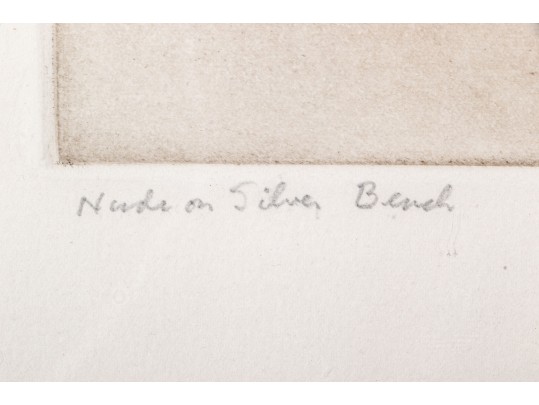 Nude on Silver Bench